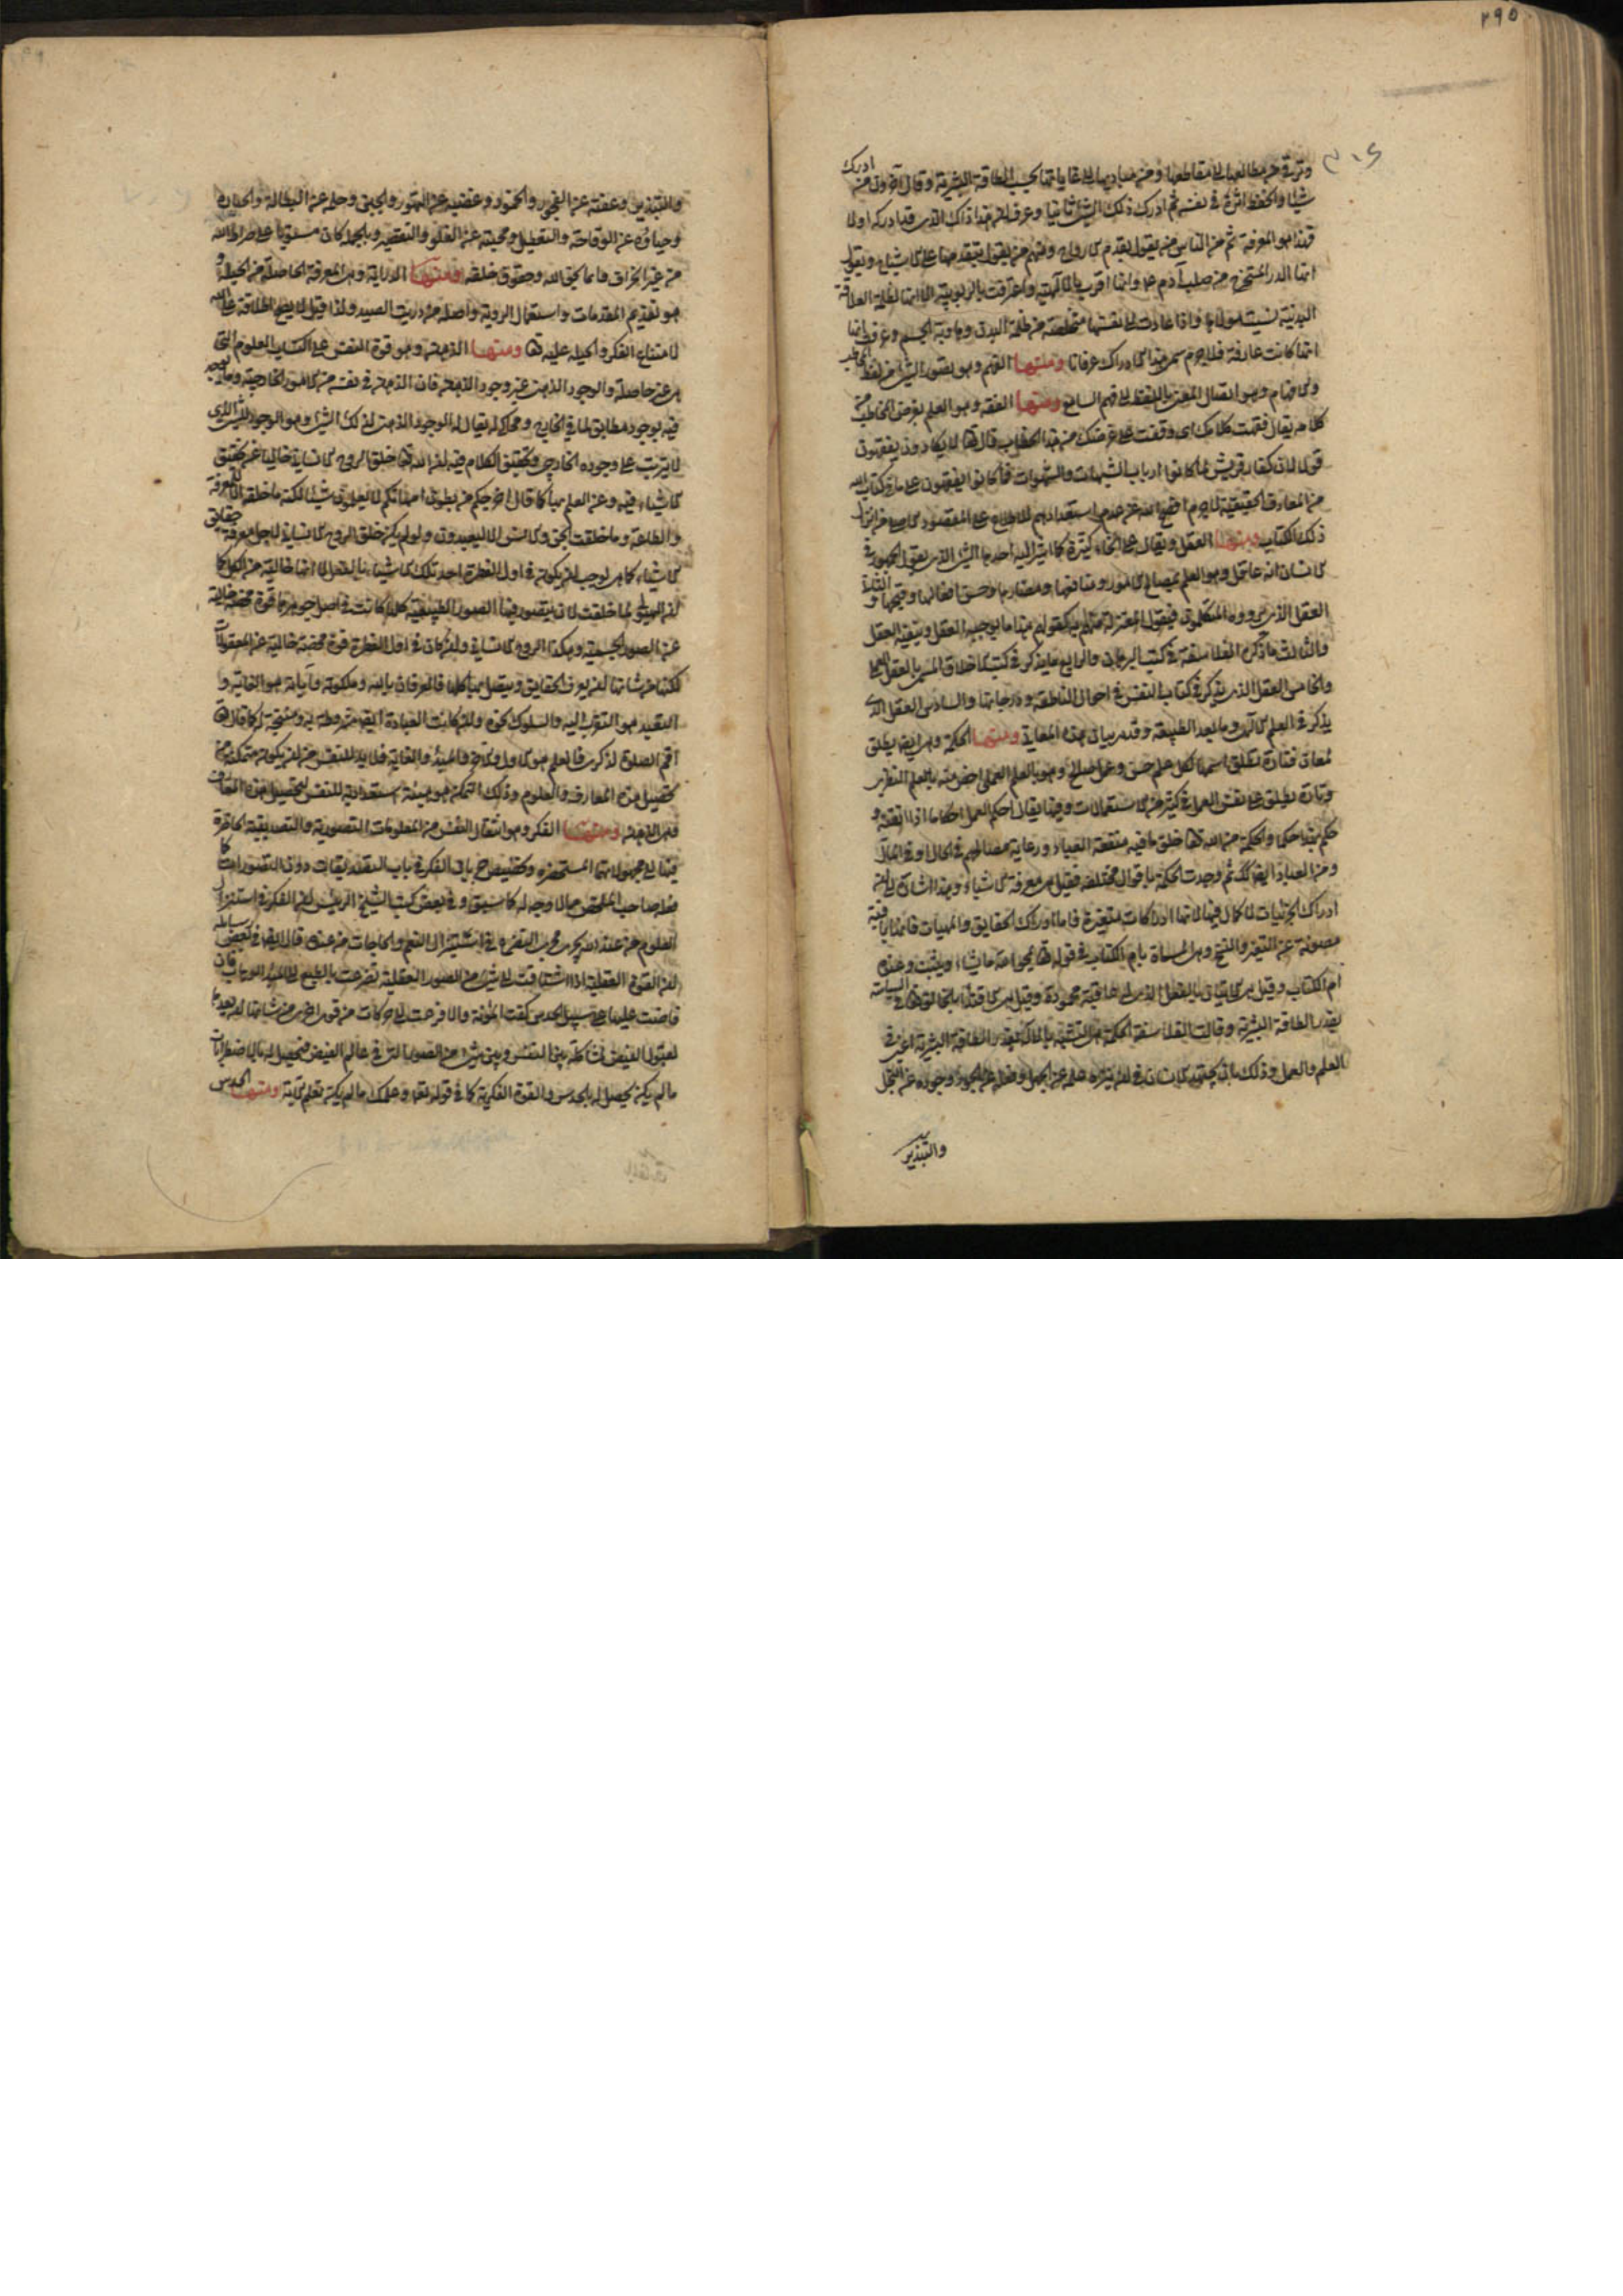 ٢٩٥
وترقى من مطالعها الى مقاطعها ومن مباديها الى غاياتها بحسب الطاقة البشرية وقال آخرون من ادرك
شيئا وانحفظ اثره في نفسه ثم ادرك ذلك الشئ ثانيا وعرف ان هذا ذاك الذي قد ادركه اولا
فهذا هو المعرفة ثم من الناس من يقول بقدم الارواح ومنهم من يقول بتقدمها على الاشباح ويقول
انها الذر المستخرج من صلب آدم ع وانها اقرت بالالهية واعترفت بالربوبية الا انها لظلمة العلاقة
البدنية نسيت مولاها واذا عادت الى نفسها متخلصة من ظلمة البدن وهاوية الجسم وعرفت انها
انها كانت عارفة فلا جرم سمى هذا الادراك عرفانا ومنها الفهم وهو تصور الشئ من لفظ المخاطب
والافهام وهو اتصال المعنى باللفظ الى فهم السامع ومنها الفقه وهو العلم بغرض المخاطب من
كلامه يقال فقهت كلامك اى وقفت على غرضك من هذا الخطاب قال تعا لا يكادون يفقهون
قولا لان كفار قريش لما كانوا ارباب الشبهات والشهوات فما كانوا يفقهون على ما في كتاب الله
من المعارف الحقيقية لا جرم افصح الله عن عدم استعدادهم للاطلاع على المقصود الاصلى من انزال
ذلك الكتاب ومنها العقل ويقال على انحاء كثيرة كما اشير اليه احدها الشئ الذي يقول الجمهور في
الانسان انه عاقل وهو العلم بمصالح الامور ومنافعها ومضارها وحسن افعالها وقبحها والثانى
العقل الذي يردده المتكلمون فيقول المعتزلة منهم كقولهم هذا ما يوجبه العقل وينفيه العقل
والثالث ما ذكره الفلاسفة في كتب البرهان والرابع ما يذكر في كتب الاخلاق المسمى بالعقل العملى
والخامس العقل الذي يذكر في كتاب النفس في احوال الناطقة ودرجاتها والسادس العقل الذي
يذكر في العلم الالهى وما بعد الطبيعة وقد مر بيان هذه المعانى ومنها الحكمة وهى ايضا يطلق
لمعان فتارة تطلق اسما لكل علم حسن وعمل صالح وهو بالعلم العملى اخص منه بالعلم النظرى
وتارة يطلق على نفس العمل في كثير من الاستعمالات وفيها يقال احكم العمل احكاما اذا اتقنه و
حكم بهذا حكما والحكمة من الله تعا خلق ما فيه منفعة العباد ورعاية مصالحهم في الحال او في المآل
ومن العباد ايضا كذلك ثم وجدت الحكمة باقوال مختلفة فقيل هى معرفة الاشياء وهذا اشارة الى ان
ادراك الجزئيات لا كمال فيها لانها ادراكات متغيرة فاما ادراك الحقايق والمهيات فانها باقية
مصونة عن التغير والنسخ وهى المسماة بام الكتاب في قوله تعا يمحو الله ما يشاء ويثبت وعنده
ام الكتاب وقيل هى الاتيان بالفعل الذي له عاقبة محمودة وقيل هى الاقتداء بالخالق تعا في السياسة
بقدر الطاقة البشرية وقالت الفلاسفة الحكمة هى التشبه بالاله بقدر الطاقة البشرية اعنى في
العلم والعمل وذلك بان يجتهد الانسان في ان ينزه علمه عن الجهل وفعله عن الجور وجوده عن البخل
والتبذير
والتبذير وعفته عن الفجور والخمود وغضبه عن التهور والجبن وحلمه عن البطالة والجسارة
وحياؤه عن الوقاحة والتعطيل ومحبته عن الغلو والتقصير وبالجملة كان مستويا على صراط الله
من غير انحراف قائما بحق الله وحقوق خلقه ومنها الدراية وهى المعرفة الحاصلة من الحيلة و
هو تقديم المقدمات واستعمال الروية واصله من دريت الصيد ولذا قيل لا يصح اطلاقه على الله
لامتناع الفكر والحيلة عليه تعا ومنها الذهن وهو قوة النفس على اكتساب العلوم التى
هى غير حاصلة والوجود الذهنى غير وجود الذهن فان الذهن في نفسه من الامور الخارجية وما يوجد
فيه بوجود مطابق لما في الخارج ومحاك له يقال له الوجود الذهنى لذلك الشئ وهو الوجود للشئ الذى
لا يترتب على وجوده الخارجى وتحقيق الكلام فيه ان الله تعا خلق الروح الانسانى خاليا عن تحقق
الاشياء فيه وعن العلم بها كما قال اخرجكم من بطون امهاتكم لا تعلمون شيئا لكنه ما خلقه الا للمعرفة
والطاعة وما خلقت الجن والانس الا ليعبدون ولو لم يكن خلق الروح الانسانى لاجل معرفة حقايق
الاشياء كما هى لوجب ان يكون في اول الفطرة احد تلك الاشياء بالفعل لا انها خالية من الكل كما
ان الهيولى لما خلقت لان يتصور فيها الصور الطبيعية كلها كانت في اصل جوهرها قوة محضة خالية
عن الصور الجسمية وهكذا الروح الانسانى وان كان في اول الفطرة قوة محضة خالية عن المعقولات
لكنها من شانها ان يعرف الحقايق ويتصل بها كلها فالعرفان بالله وملكوته وآياته هو الغاية و
التعبد هو التقرب اليه والسلوك نحوه وان كانت العبادة ايضا مشروطة به ومنتجة له كما قال تعا
اقم الصلوة لذكرى فالعلم هو الاول والآخر والمبدأ والغاية فلا بد للنفس من ان يكون متمكنة من
تحصيل هذه المعارف والعلوم وذلك التمكن هو هيئة استعدادية للنفس لتحصيل هذه المعارف
فهى الذهن ومنها الفكر وهو انتقال النفس من المعلومات التصورية والتصديقية الحاضرة
فيها الى مجهولاتها المستحضره وتخصيص جريان الفكر في باب التصديقات دون التصورات كما
فعله صاحب الملخص مما لا وجه له كما سبق وفي بعض كتب الشيخ الرئيس ان الفكر في استنزال
العلوم من عند الله يجرى مجرى التضرع في استنزال النعم والحاجات من عنده قال ايضا في بعض رسائله
ان القوة العقلية اذا اشتاقت الى شئ من الصور العقلية تضرعت بالطبع الى المبدأ الوهاب فان
فاضت عليها على سبيل الحدس كفت المؤنة والا فزعت الى حركات من قوى اخرى من شانها ان يعدها
لقبول الفيض لمشاكلة بين النفس وبين شئ من الصور التى في عالم الفيض فيحصل له بالاضطراب
ما لم يكن يحصل له بالحدس والقوة الفكرية كما في قوله تعا وعلمك ما لم تكن تعلم الآية ومنها الحدس